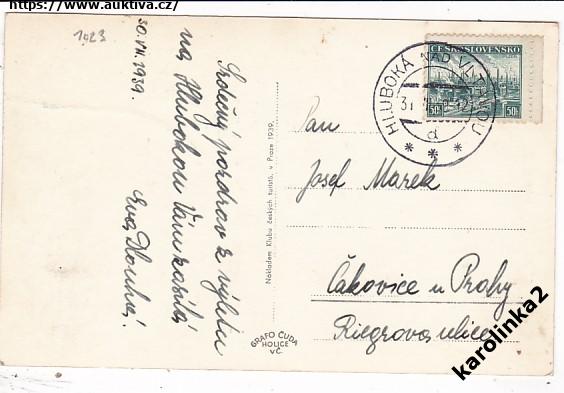 https://www.auktiva.cz/
1.023
30.VIII.1939.
Srdečný pozdrav z výletu
na Hlubokou Vám zasílá
Eva Dlouhá!
Nákladem Klubu českých turistů, v Praze 1939.
GRAFO ČUDA
HOLICE
v Č.
ČESKOSLOVENSKO
50h
50h
HLUBOKÁ NAD VLTAVOU
d
* * *
Pan
Josef Marek
Čakovice u Prahy
Riegrova ulice
karolinka2